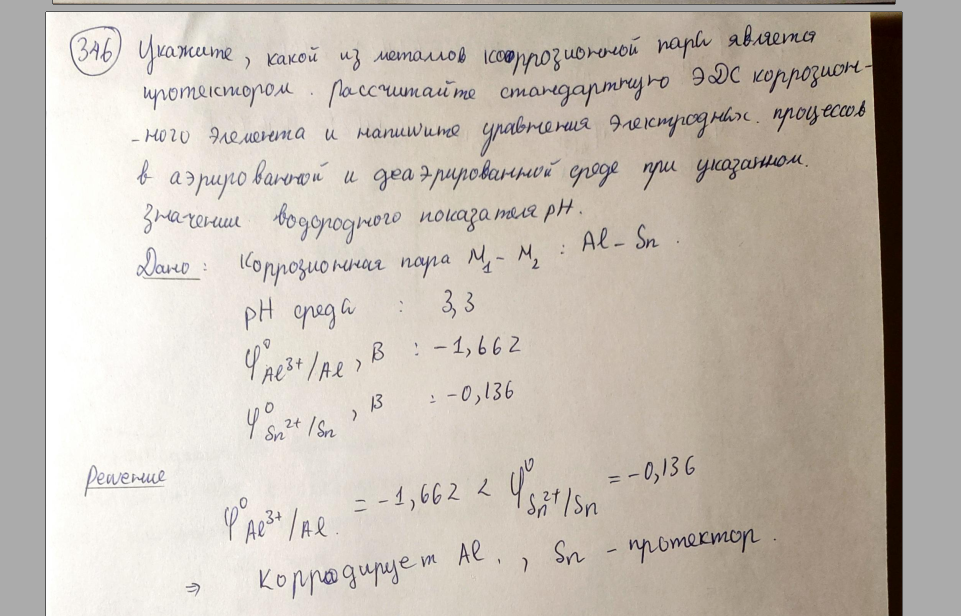 346 Укажите, какой из металлов коррозионной пары является
протектором. Рассчитайте стандартную ЭДС коррозион-
-ного элемента и напишите уравнения электродных. процессов
в аэрированной и деаэрированной среде при указанном.
значении водородного показателя pH.
Дано: Коррозионная пара M₁ - M₂ : Al - Sn.
pH среда : 3,3
φ⁰ Al³⁺/Al, В : -1,662
φ⁰ Sn²⁺/Sn, В : -0,136
Решение
φ⁰ Al³⁺/Al. = -1,662 < φ⁰ Sn²⁺/Sn = -0,136
⇒ Корродирует Al., Sn - протектор.